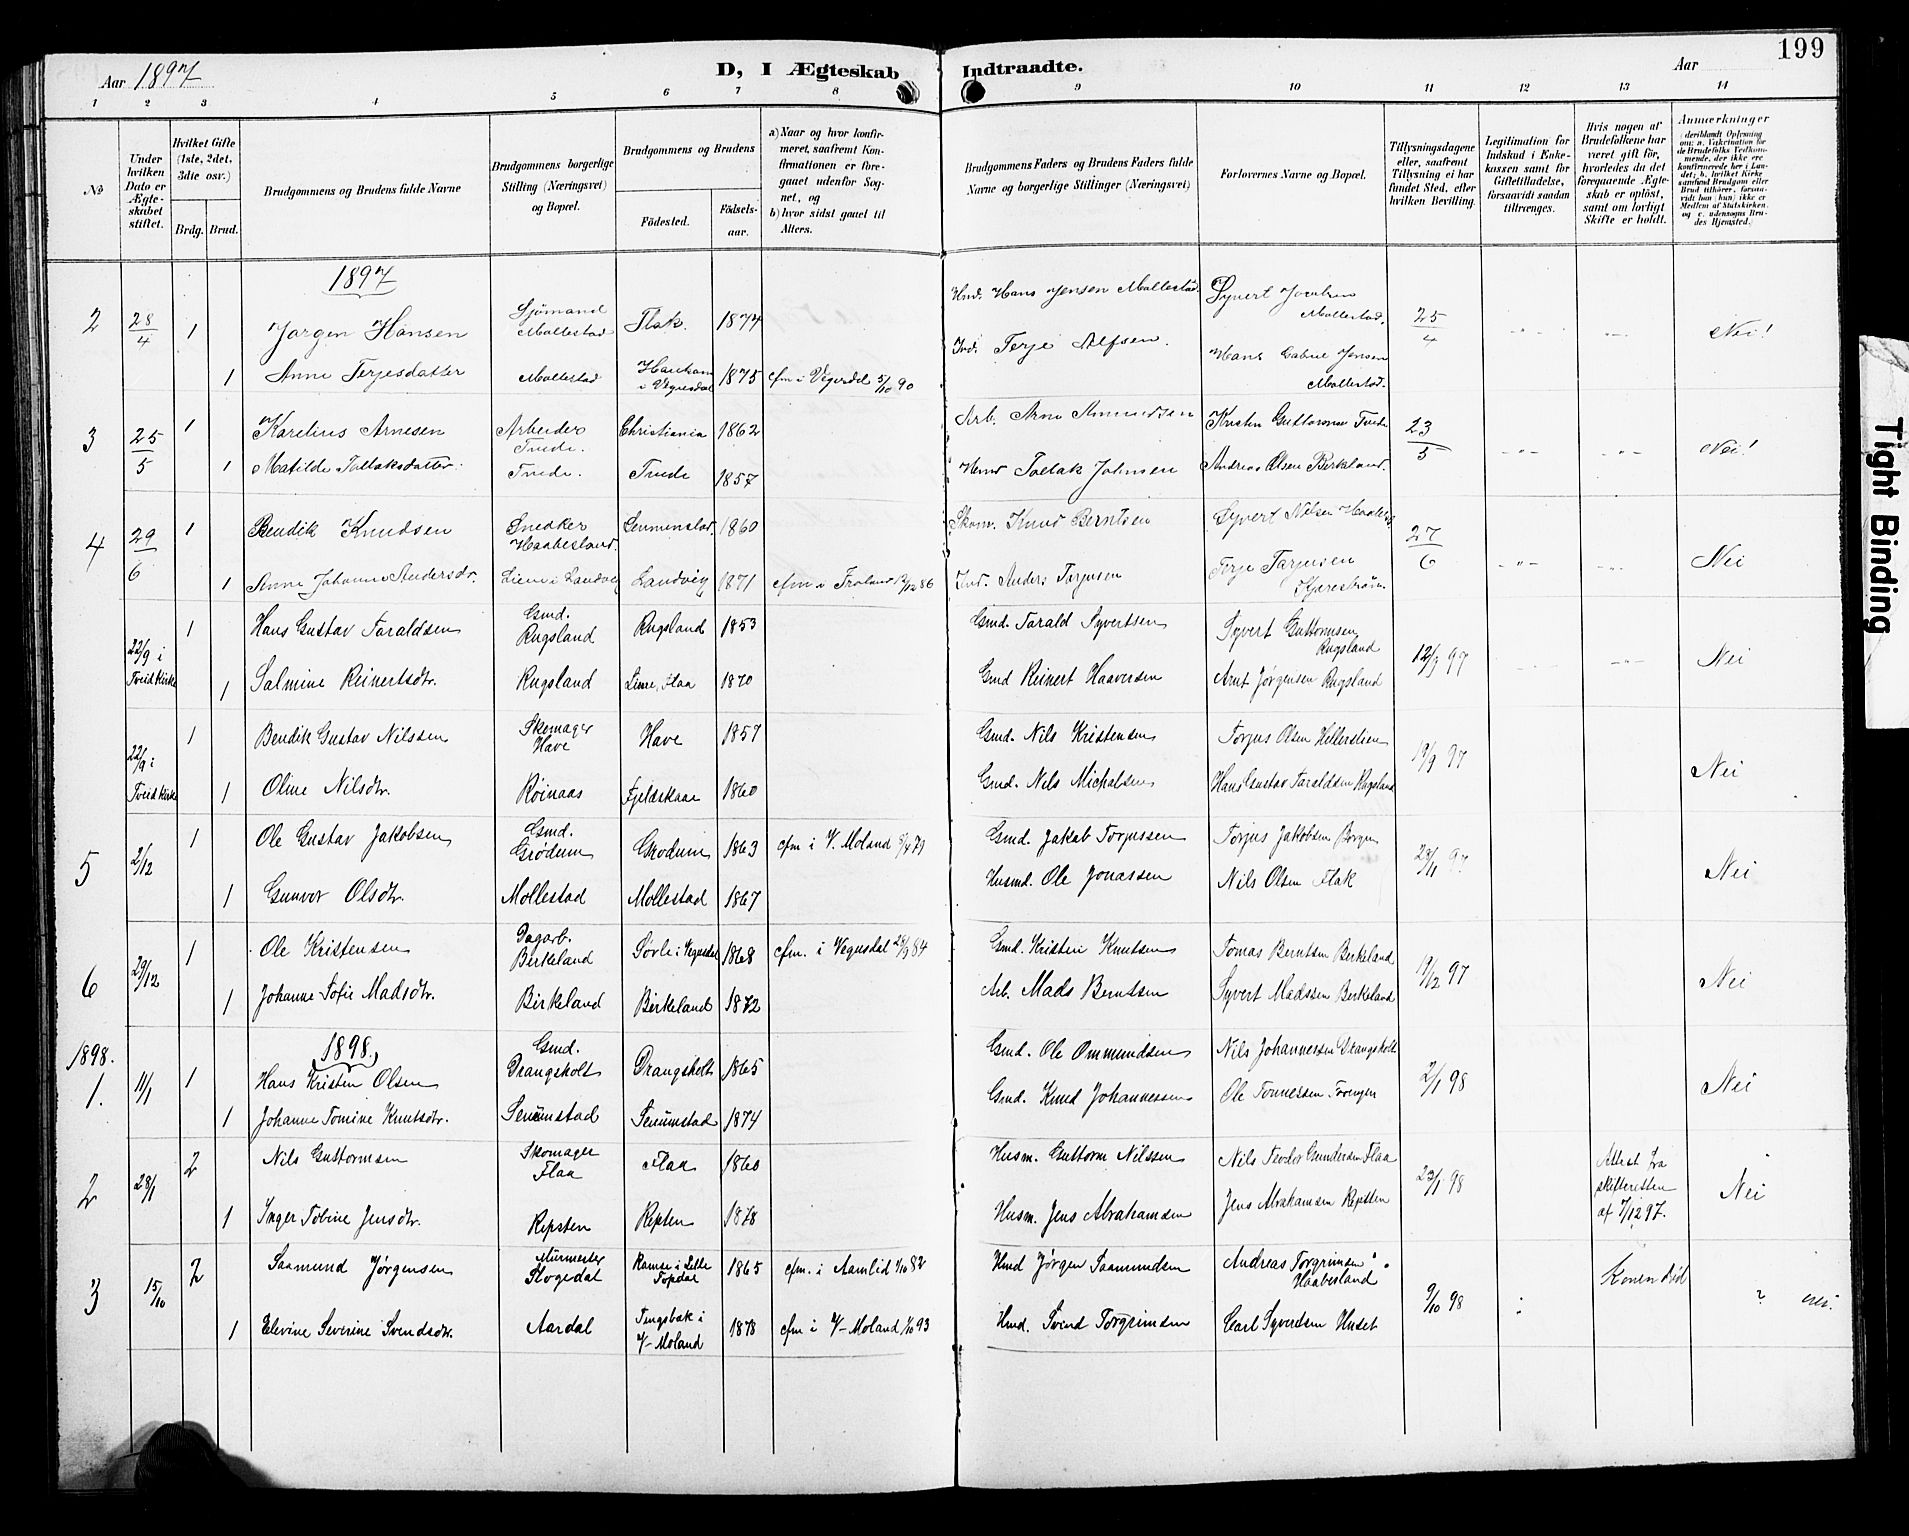 199
Aar 1897 D, I Ægteskab Indtraadte. Aar
1 2 3 4 5 6 7 8 9 10 11 12 13 14
No
Under hvilken Dato er Ægteskabet stiftet.
Hvilket Gifte (1ste, 2det, 3die osv.)
Brdg. Brud.
Brudgommens og Brudens fulde Navne
Brudgommens borgerlige Stilling (Næringsvei) og Bopæl.
Brudgommens og Brudens
Födested. Födsels-aar.
a) Naar og hvor konfirmeret, saafremt Konfirmationen er foregaaet udenfor Sognet, og
b) hvor sidst gaaet til Alters.
Brudgommens Faders og Brudens Faders fulde Navne og borgerlige Stillinger (Næringsvei)
Forlovernes Navne og Bopæl.
Tillysningsdagene eller, saafremt Tillysning ei har fundet Sted, efter hvilken Bevilling.
Legitimation for Indskud i Enkekassen samt for Giftetilladelse, forsaavidt saadan tiltrænges.
Hvis nogen af Brudefolkene har været gift för, hvorledes da det foregaaende Ægteskab er oplöst, samt om lovligt Skifte er holdt.
Anmærkninger
1897
2 28/4 1 Jørgen Hansen Sjømand Mollestad Flak. 1874 Hmd. Hans Jensen Mollestad Syvert Jocobsen Mollestad. 25/4 Nei!
1 Anne Terjesdatter Mollestad i Vegusdal 1875 cfm i Vegusdal 5/10 90 Ind. Terje Alfsen. Hans Gabriel Jensen Mollestad.
3 25/5 1 Karelius Arnesen Arbeider Tveide. Christiania 1862 Arb. Arne Amundsen Kristen Guttormsen Tveide 23/5 Nei!
1 Matilde Tollaksdatter. Tveide. Tveide 1857 Hmd Tollak Johnsen Andreas Olsen Birkeland.
4 29/6 1 Bendik Knudsen Snedker Haabesland. Senumstad. 1860 Skom. Knud Berntsen Syvert Nilsen 27/6 Nei
1 Anne Johanne Andersdr. Lien i Landvig Landvig 1871 cfm i Froland 12/12 86 Ind. Anders Terjesen Terje Tarjeisen
22/9 i Tveid Kirke 1 Hans Gustav Taraldsen Gmd. Rugsland Rugsland 1853 Gmd. Tarald Syvertsen Syvert Guttormsen Rugsland 12/9 97 Nei
1 Salmine Reinertsdtr. Rugsland Flaa 1870 Gmd Reinert Haaversen Arnt Jørgensen Rugsland
22/9 i Tveid Kirke 1 Bendik Gustav Nilssen Skomager Have Have 1857 Gmd. Nils Kristensen Torjus Olsen Hellerslien 19/9 97 Nei
1 Oline Nilsdtr. Røinaas Fjeldskaar 1860 Gmd. Nils Michalsen Hans Gustav Taraldsen Rugsland
5 2/12 1 Ole Gustav Jakobsen Gmd. Grødum Grødum 1863 cfm i V. Moland 6/4 79 Gmd. Jakob Torjussen Torjus Jakobsen Borgen 28/11 97. Nei
1 Gunvor Olsdtr. Mollestad Mollestad 1867 Husmd. Ole Jonassen Nils Olsen Flak
6 29/12 1 Ole Kristensen Dagarb. Birkeland Søvle i Vegusdal 1868 cfm. i Vegusdal 28/9 84 Gmd. Kristen Knutsen Tomas Berntsen Birkeland 19/12 97 Nei
1 Johanne Sofie Madsdtr. Birkeland Birkeland 1872 Arb. Mads Berntsen Syvert Madssen Birkeland
1898. 1898.
1. 11/1 1 Hans Kristen Olsen Gmd. Drangsholt Drangsholt 1865 Gmd. Ole Ommundsen Nils Johannessen Drangsholt 2/1 98 Nei
1 Johanne Tomine Knutsdtr. Senumstad Senumstad 1874 Gmd. Knud Johannessen Ole Tonnessen
2 28/1 2 Nils Guttormsen Skomager Flaa Flaa 1860 Husm. Guttorm Nilssen Nils Teodor Gundersen Flaa 23/1 98 Attest fra skifteretten af 7/12 97. Nei
1 Inger Tobine Jensdtr. Repsten Repsten 1878 Husm. Jens Abrahamsen Jens Abrahamsen Repsten
3 15/10 2 Saamund Jørgensen Mürmester Stogedal Ramse i Lille Topdal 1865 cfm. i Aamlid 1/10 82 Hmd Jørgen Saamundsen Andreas Torgrimsen Haabesland 9/10 98 Konen død ?
1 Elevine Severine Svendsdtr. Aardal Tengsbak i V-Moland 1878 cfm i V-Moland 1/10 93 Hmd. Svend Torgrimsen Carl Syvertsen Huset
Tight Binding